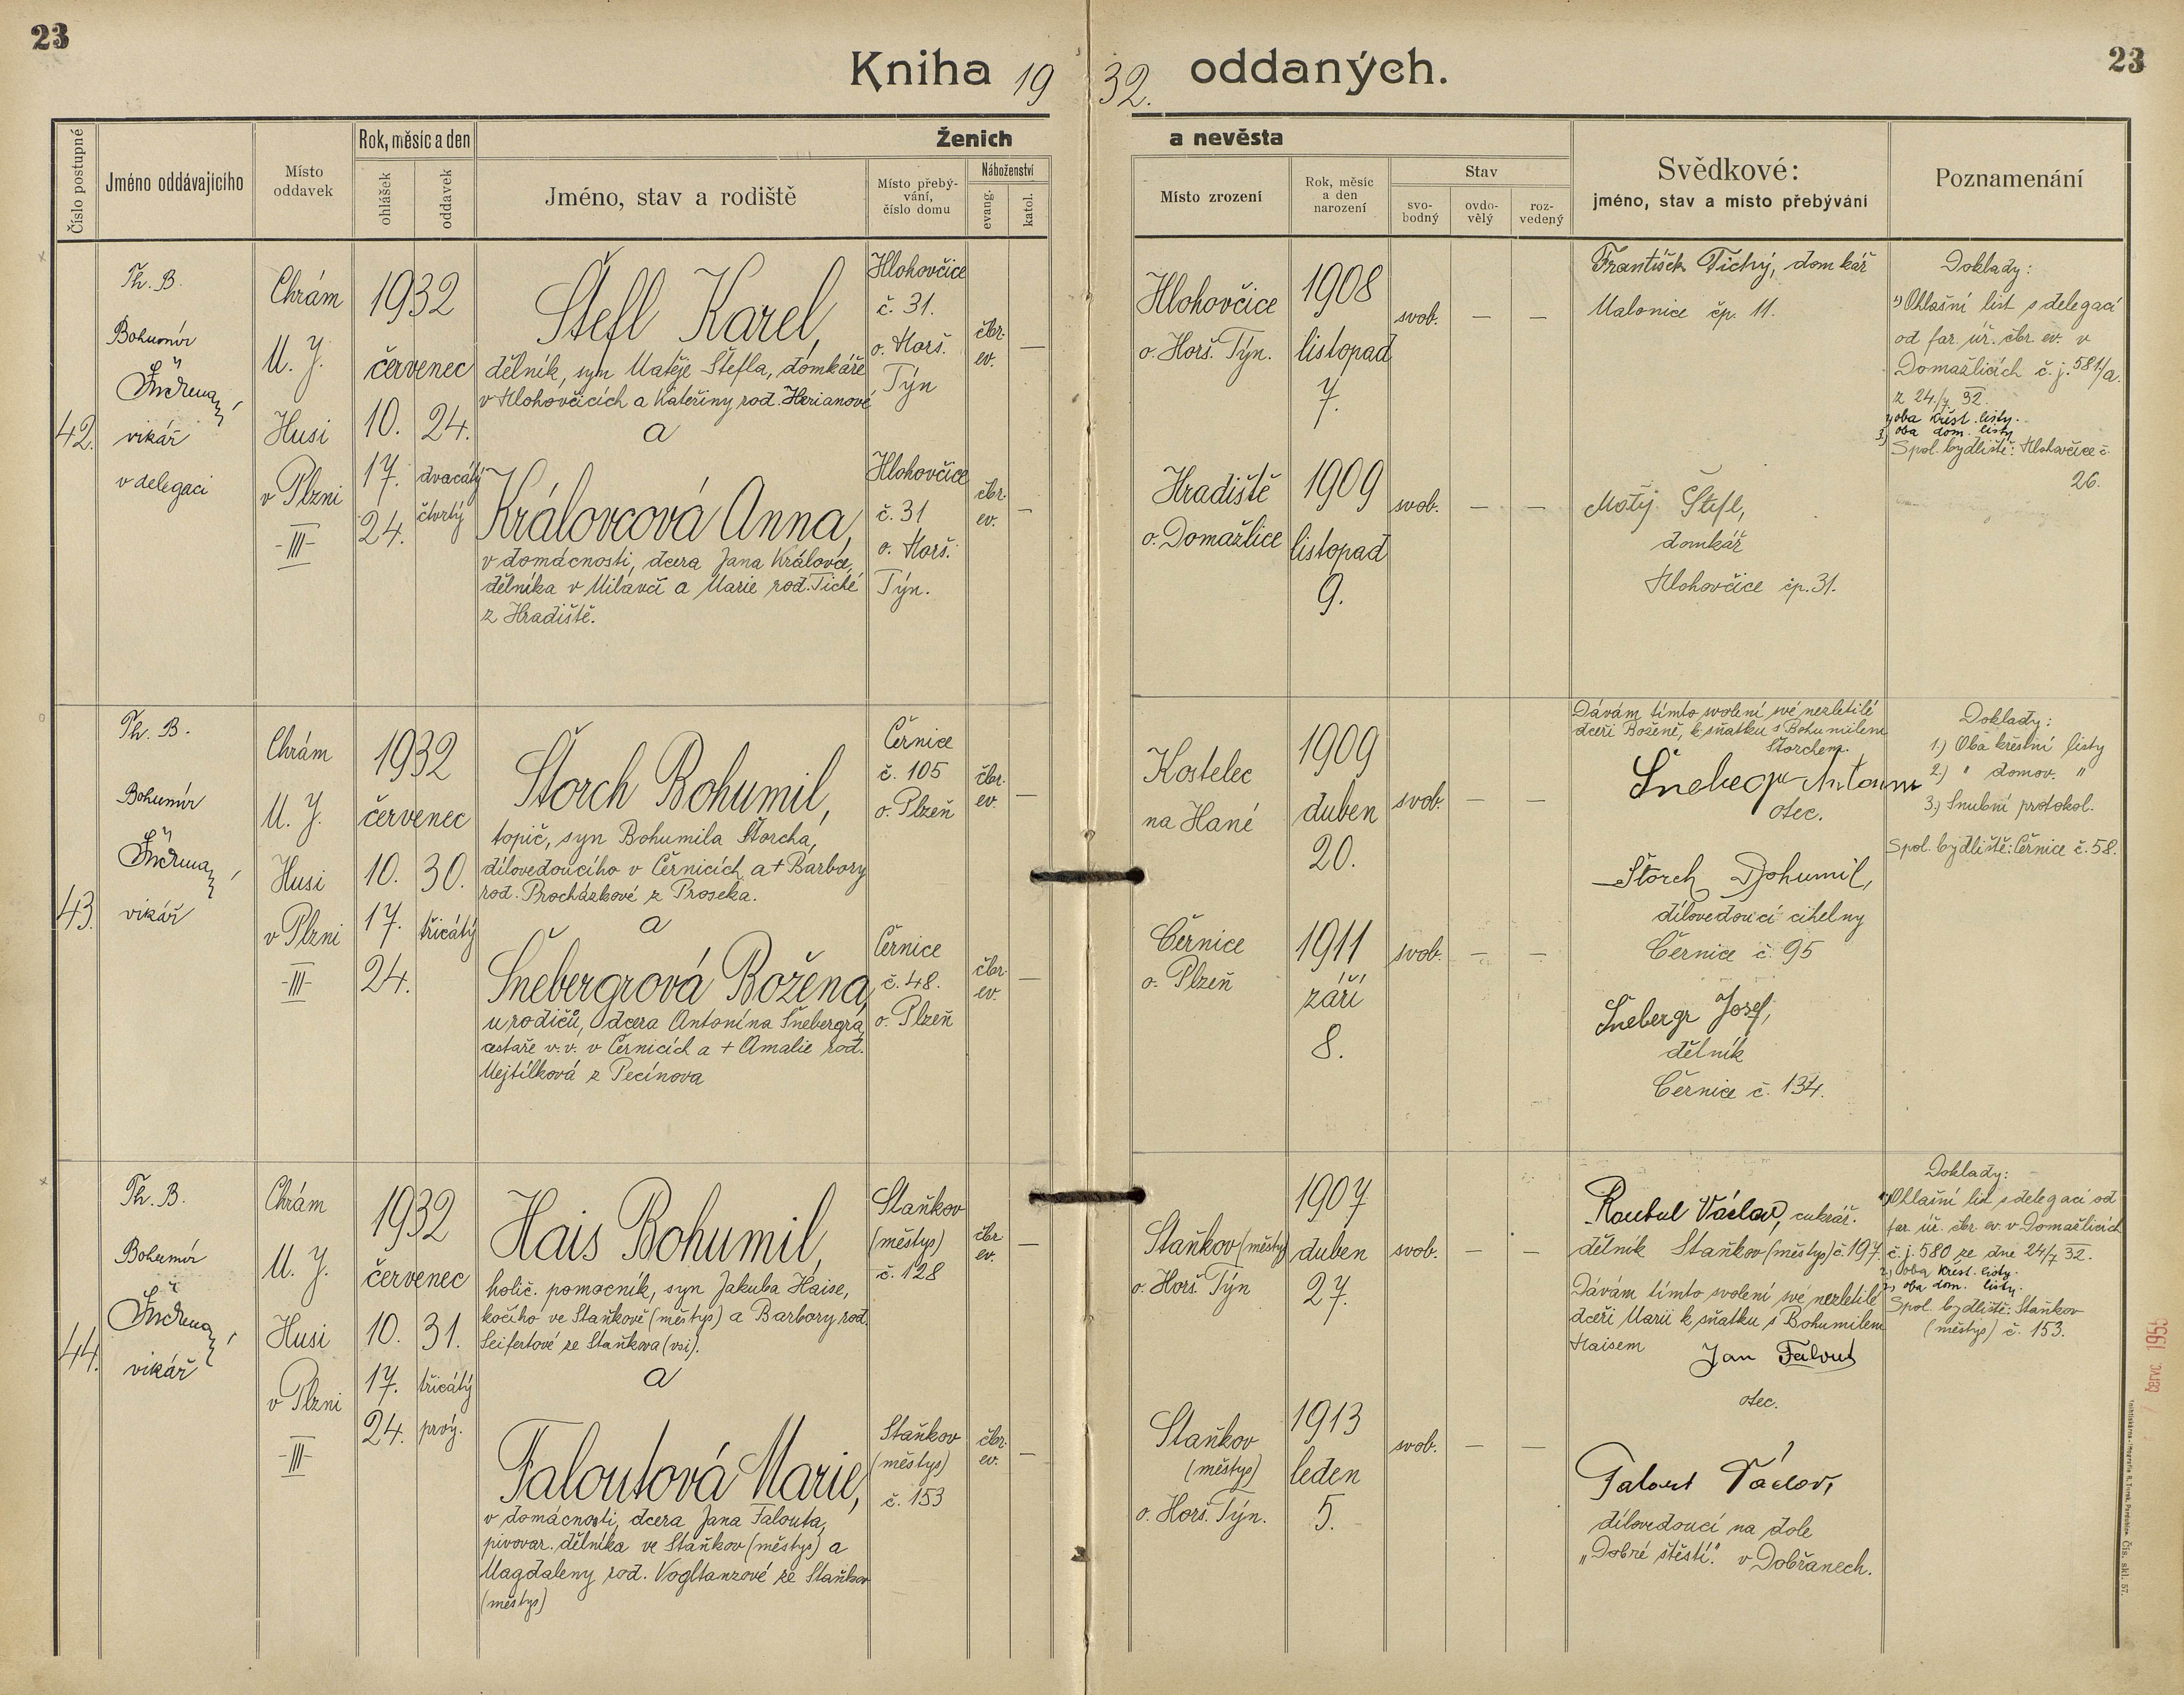 23
23
Kniha 1932. oddaných.
Číslo postupné
Jméno oddávajícího
Místo oddavek
Rok, měsíc a den
ohlášek
oddavek
Ženich
a nevěsta
Jméno, stav a rodiště
Místo přebývání, číslo domu
Náboženství
evang.
katol.
Místo zrození
Rok, měsíc a den narození
Stav
svobodný
ovdovělý
rozvedený
Svědkové:
jméno, stav a místo přebývání
Poznamenání
42.
Th. B.
Bohumír
vikář
v delegaci
Chrám
M. J.
Husi
v Plzni
-III-
1932
červenec
10. 24.
17. dvacátý
24. čtvrtý
Štefl Karel,
dělník, syn Matěje Štefla, domkáře
v Hlohovčicích a Kateřiny rod. Herianové
a
Královcová Anna,
v domácnosti, dcera Jana Královce,
dělníka v Milavči a Marie rod. Tiché
z Hradiště.
Hlohovčice
č. 31.
o. Horš.
Týn
Hlohovčice
č. 31
o. Horš.
Týn.
čbr.
ev.
—
čbr.
ev.
—
Hlohovčice
o. Horš. Týn.
Hradiště
o. Domažlice
1908
listopad
7.
1909
listopad
9.
svob. — —
svob. — —
František Tichý, domkář
Malonice čp. 11.
Matěj Štefl,
domkář
Hlohovčice čp. 31.
Doklady:
1) Ohlašní list s delegací
od far. úř. čbr. ev. v
Domažlicích č. j. 581/a.
z 24./7 32.
2) oba křest. listy.
3) oba dom. listy
Spol. bydliště: Hlohovčice č.
26.
43.
Th. B.
Bohumír
vikář
Chrám
M. J.
Husi
v Plzni
-III-
1932
červenec
10. 30.
17. třicátý
24.
Štorch Bohumil,
topič, syn Bohumila Štorcha,
dílovedoucího v Černicích a + Barbory
rod. Procházkové z Proseka.
a
Šnebergrová Božena,
u rodičů, dcera Antonína Šnebergra,
cestáře v. v. v Černicích a + Amalie rod.
Mejtílková z Pecínova
Černice
č. 105
o. Plzeň
Černice
č. 48.
o. Plzeň
čbr.
ev.
—
čbr.
ev.
—
Kostelec
na Hané
Černice
o. Plzeň
1909
duben
20.
1911
září
8.
svob. — —
svob. — —
Dávám tímto svolení své nezletilé
dceři Boženě, k sňatku s Bohumilem
Štorchem.
Antonín
otec.
Štorch Bohumil,
dílovedoucí cihelny
Černice č. 95
Šnebergr Josef,
dělník
Černice č. 134.
Doklady:
1.) Oba křestní listy
2.) " domov. "
3.) Snubní protokol.
Spol. bydliště: Černice č. 58.
44.
Th. B.
Bohumír
vikář
Chrám
M. J.
Husi
v Plzni
-III-
1932
červenec
10. 31.
17. třicátý
24. prvý.
Hais Bohumil,
holič. pomocník, syn Jakuba Haise,
kočího ve Staňkově (městys) a Barbory rod.
Seifertové ze Staňkova (vsi).
a
Faloutová Marie,
v domácnosti, dcera Jana Falouta,
pivovar. dělníka ve Staňkov (městys) a
Magdaleny rod. Vogltanzové ze Staňkov
(městys)
Staňkov
(městys)
č. 128
Staňkov
(městys)
č. 153
čbr
ev.
—
čbr.
ev.
—
Staňkov (městys)
o. Horš. Týn
Staňkov
(městys)
o. Horš. Týn.
1907
duben
27.
1913
leden
5.
svob. — —
svob. — —
Václav, cukrář.
dělník Staňkov (městys) č. 197.
Dávám tímto svolení své nezletilé
dceři Marii k sňatku s Bohumilem
Haisem
Jan Falout
otec.
Falout Václav,
dílovedoucí na dole
„Dobré štěstí." v Dobřanech.
Doklady:
1) Ohlašní list s delegací od
far. úř. čbr. ev. v Domažlicích
č. j. 580 ze dne 24/7 32.
2) oba křest. listy.
3) oba dom. listy.
Spol. bydliště: Staňkov
(městys) č. 153.